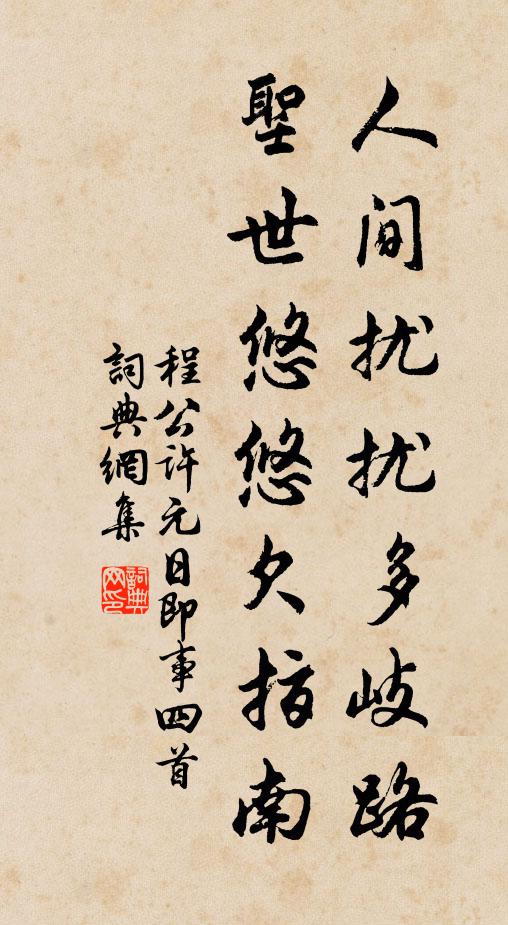 人间扰扰多岐路
聖世悠悠欠指南
程公许元日即事四首
詞典網集
詞典
网印